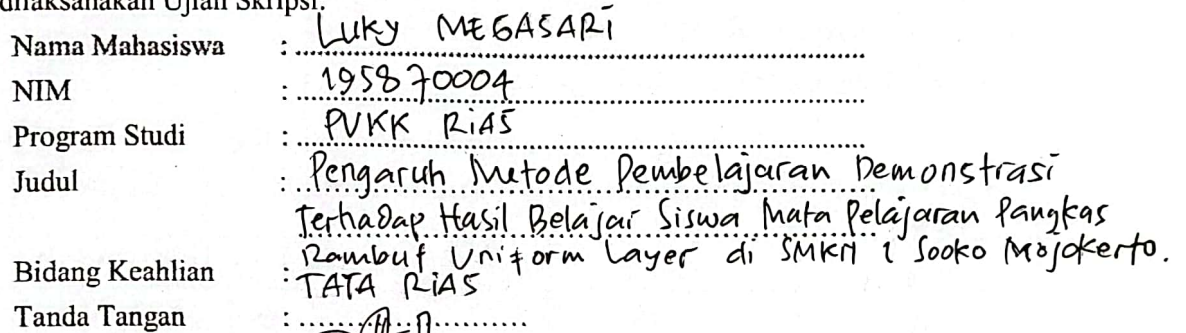 dilaksanakan Ujian Skripsi.
Nama Mahasiswa : Luky MEGASARi
NIM : 195870004
Program Studi : PVKK RiAS
Judul : Pengaruh Metode Pembelajaran Demonstrasi
Terhadap Hasil Belajar Siswa Mata Pelajaran Pangkas
Rambut Uniform Layer di SMKN 1 Sooko Mojokerto.
Bidang Keahlian : TATA RiAS
Tanda Tangan :